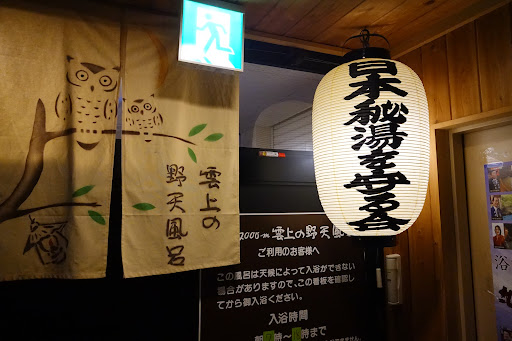 雲上の
野天風呂
日本秘湯を守る会
雲上の野天風
ご利用のお客様へ
この風呂は天候によって入浴ができない
場合がありますので、この看板を確認し
てから御入浴ください。
入浴時間
時〜 時まで
浴